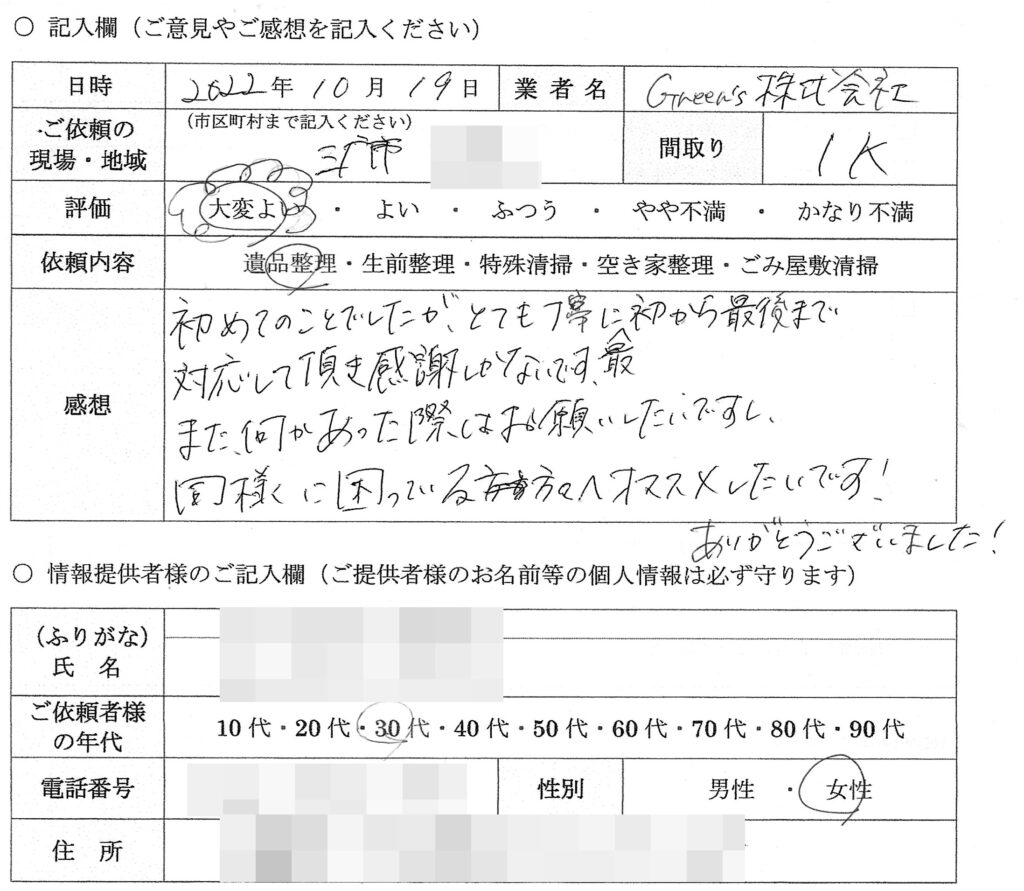 ○ 記入欄（ご意見やご感想を記入ください）
日時 2022年 10月 19日 業者名 Green's 株式会社
ご依頼の現場・地域 （市区町村まで記入ください） 間取り 1K
市
評価 大変よい ・ よい ・ ふつう ・ やや不満 ・ かなり不満
依頼内容 遺品整理・生前整理・特殊清掃・空き家整理・ごみ屋敷清掃
感想
初めてのことでしたが、とても丁寧に初から最後まで
対応して頂き感謝しかないです。最
また、何かあった際はお願いしたいですし、
同様に困っている方々へオススメしたいです！
ありがとうございました！
○ 情報提供者様のご記入欄（ご提供者様のお名前等の個人情報は必ず守ります）
（ふりがな）
氏 名
ご依頼者様の年代 10代・20代・30代・40代・50代・60代・70代・80代・90代
電話番号 性別 男性 ・ 女性
住 所